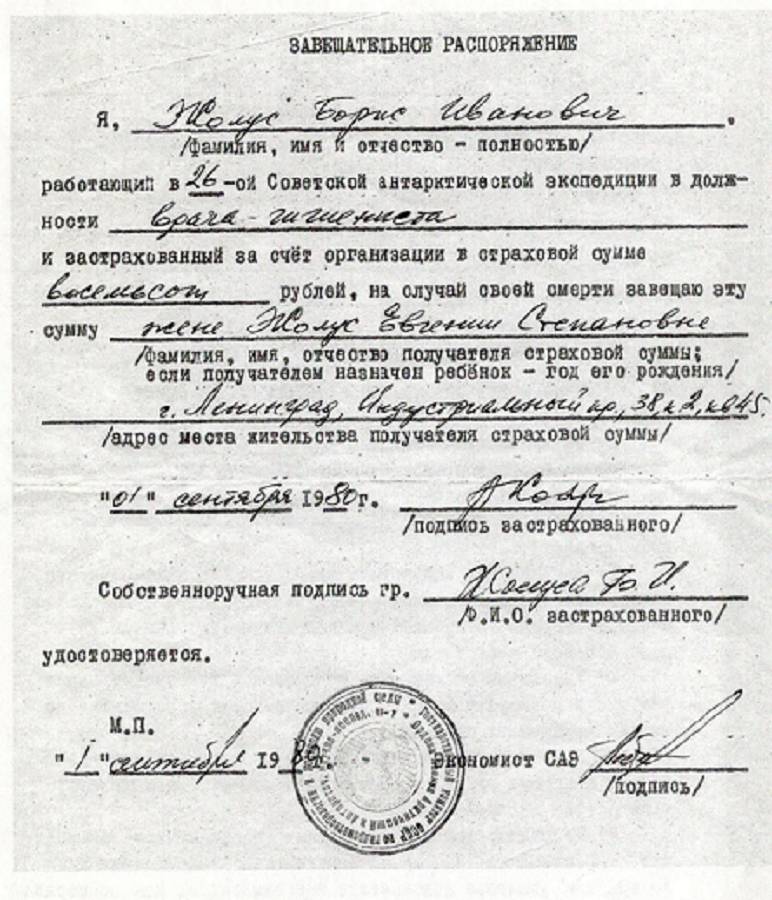 ЗАВЕЩАТЕЛЬНОЕ РАСПОРЯЖЕНИЕ
Я, Жолус Борис Иванович.
/фамилия, имя и отчество - полностью/
работающий в 26-ой Советской антарктической экспедиции в долж-
ности врача-гигиениста
и застрахованный за счёт организации в страховой сумме
восемьсот рублей, на случай своей смерти завещаю эту
сумму жене Жолус Евгении Степановне
/фамилия, имя, отчество получателя страховой суммы;
если получателем назначен ребёнок - год его рождения/
г. Ленинград, Индустриальный пр., 38, к 2, кв 45.
/адрес места жительства получателя страховой суммы/
"01" сентября 1980г.
/подпись застрахованного/
Собственноручная подпись гр. Жолуса Б. И.
/Ф.И.О. застрахованного/
удостоверяется.
М.П.
"1" сентября 198 г. экономист САЭ
/подпись/